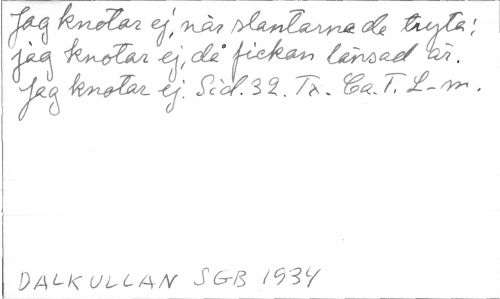 Jag knotar ej, när slantarna de tryta;
jag knotar ej, då fickan länsad är.
Jag knotar ej. Sid. 32. Tx. Ca. T. L-m.
DALKULLAN SGB 1934